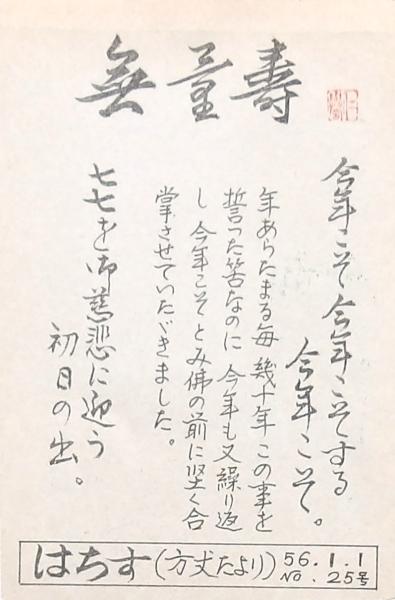 無量壽
今年こそ今年こそする
今年こそ。
年あらたまる毎 幾十年この事を
誓った筈なのに 今年も又繰り返
し 今年こそ とみ佛の前に堅く合
掌させていたゞきました。
七七を御慈悲に迎う
初日の出。
はちす(方丈たより) 56.1.1
NO.25号